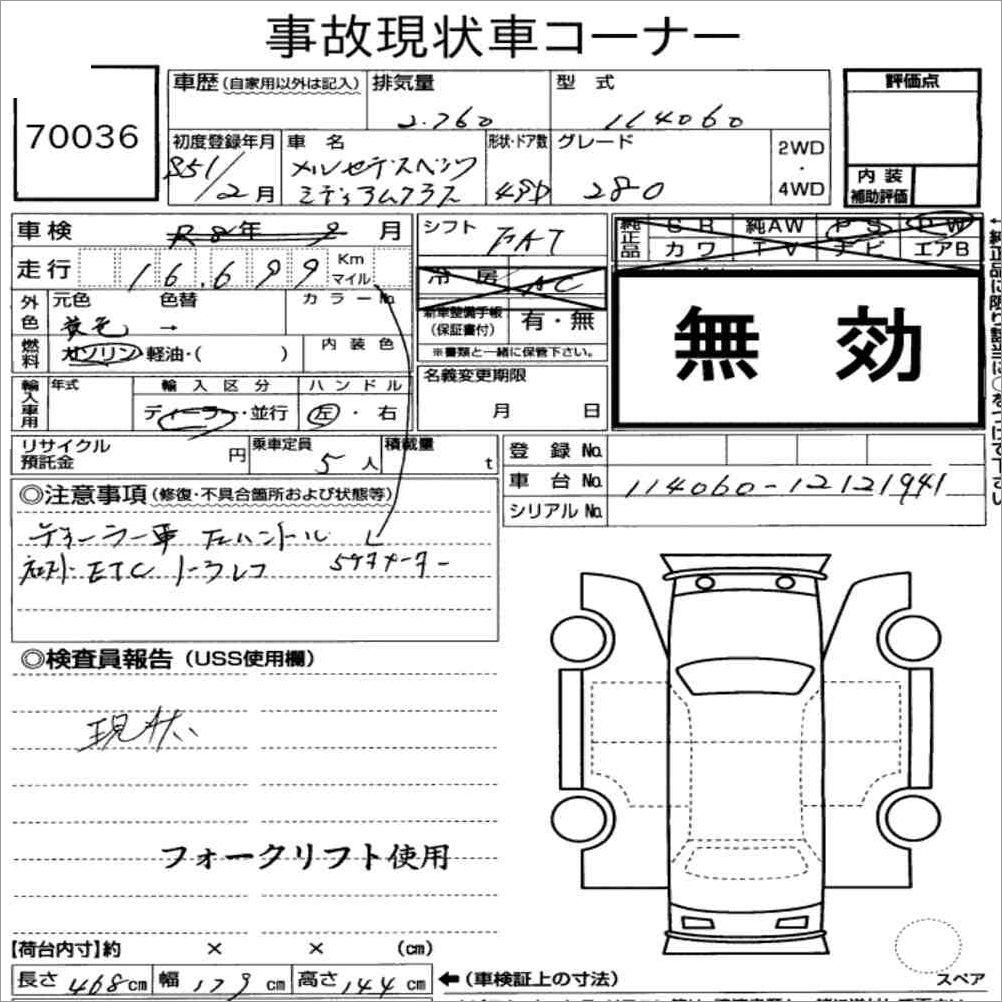 事故現状車コーナー
70036
車歴 (自家用以外は記入) 排気量 型式 評価点
2.760 114060
初度登録年月 車名 形状・ドア数 グレード 2WD・4WD 内装補助評価
S51/2月 メルセデスベンツ 4SD 280
ミディアムクラス
車検 R8年 月 シフト FAT 純正品 SR 純AW PS PW
カワ TV ナビ エアB
走行 16,699 Km マイル 冷房 AC
外色 元色 色替 カラーNo. 新車整備手帳(保証書付) 有・無
黄色 →
無効
燃料 ガソリン 軽油・( ) 内装色 ※書類と一緒に保管下さい。
輸入車用 年式 輸入区分 ハンドル 名義変更期限
ディーラー・並行 左・右 月 日
リサイクル預託金 円 乗車定員 5人 積載量 t
登録No.
車台No. 114060-12121941
シリアルNo.
◎注意事項 (修復・不具合箇所および状態等)
ディーラー車 左ハンドル
ETC トラレコ 5ケタメーター
◎検査員報告 (USS使用欄)
現状
フォークリフト使用
【荷台内寸】約 × × (cm)
長さ 468cm 幅 179cm 高さ 144cm ←(車検証上の寸法)
スペア